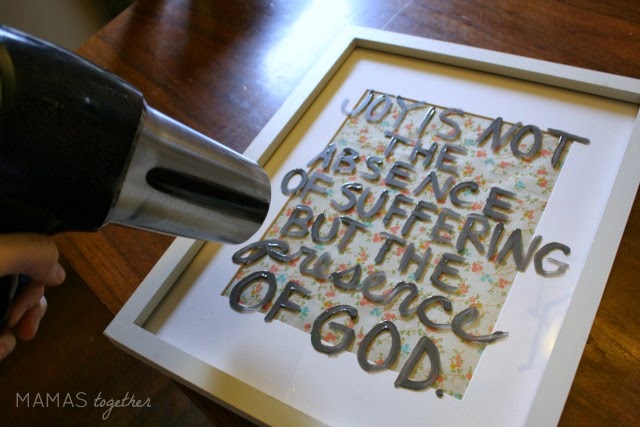 JOY IS NOT
THE
ABSENCE
OF SUFFERING
BUT THE
presence
OF GOD.
MAMAS together